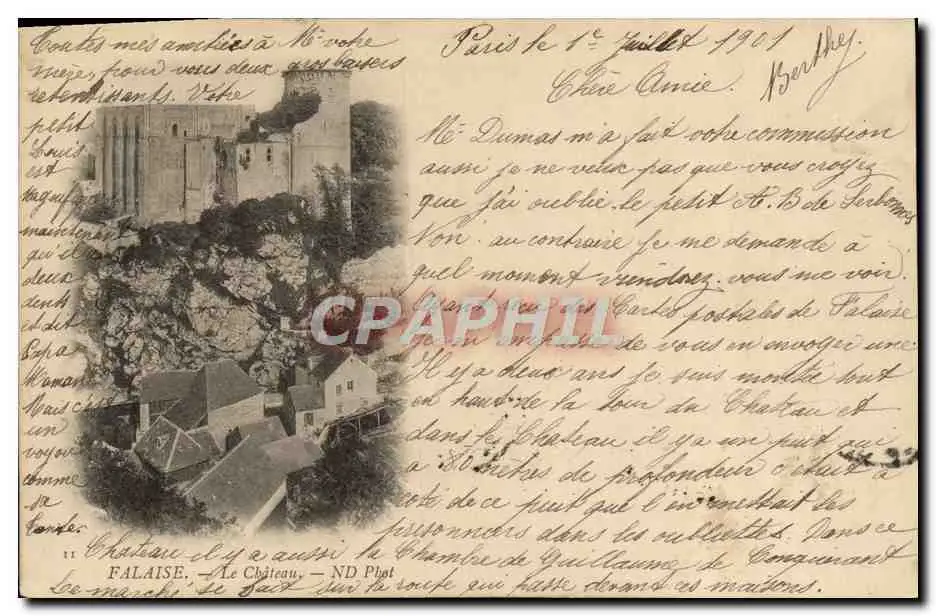 Paris le 1e Juillet 1901
Chère Amie.
Berthe.
Me Dumas m'a fait votre commission
aussi je ne veux pas que vous croyez
que j'ai oublié le petit A. B de
Non au contraire je me demande à
quel moment viendrez vous me voir.
des Cartes postales de Falaise
de vous en envoyer une.
Il y a deux ans je suis montée tout
en haut de la tour du Chateau et
dans le Chateau il y a un puit qui
a 80 mètres de profondeur c'était à
coté de ce puit que l'on mettait les
prisonniers dans les oubliettes. Dans ce
Chateau il y a aussi la Chambre de Guillaume Le Conquerant
Le marché se fait sur la route qui passe devant ces maisons.
Toutes mes amitiées à Me votre
mère, pour vous deux gros baisers
retentissants. Votre
petit
Louis
est
magnifique
maintenant
qu'il a
deux
dents
et dit
Papa
Maman
Mais c'est
un
voyou
comme
sa
tante.
11
FALAISE. — Le Château. — ND Phot
CPAPHIL